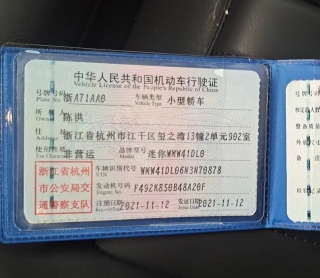 中华人民共和国机动车行驶证
Vehicle License of the People's Republic of China
号牌号码 浙A71AA0 车辆类型 小型轿车
Plate No. Vehicle Type
所有人 陈洪
住址 浙江省杭州市江干区玺之湾13幢2单元902室
使用性质 非营运 品牌型号 迷你WMW41DL0
Use Character Model
浙江省杭州 车辆识别代号 WMW41DL06N3N70878
VIN
市公安局交 发动机号码 F492K850B48A20F
Engine No.
通警察支队 注册日期 2021-11-12 发证日期 2021-11-12